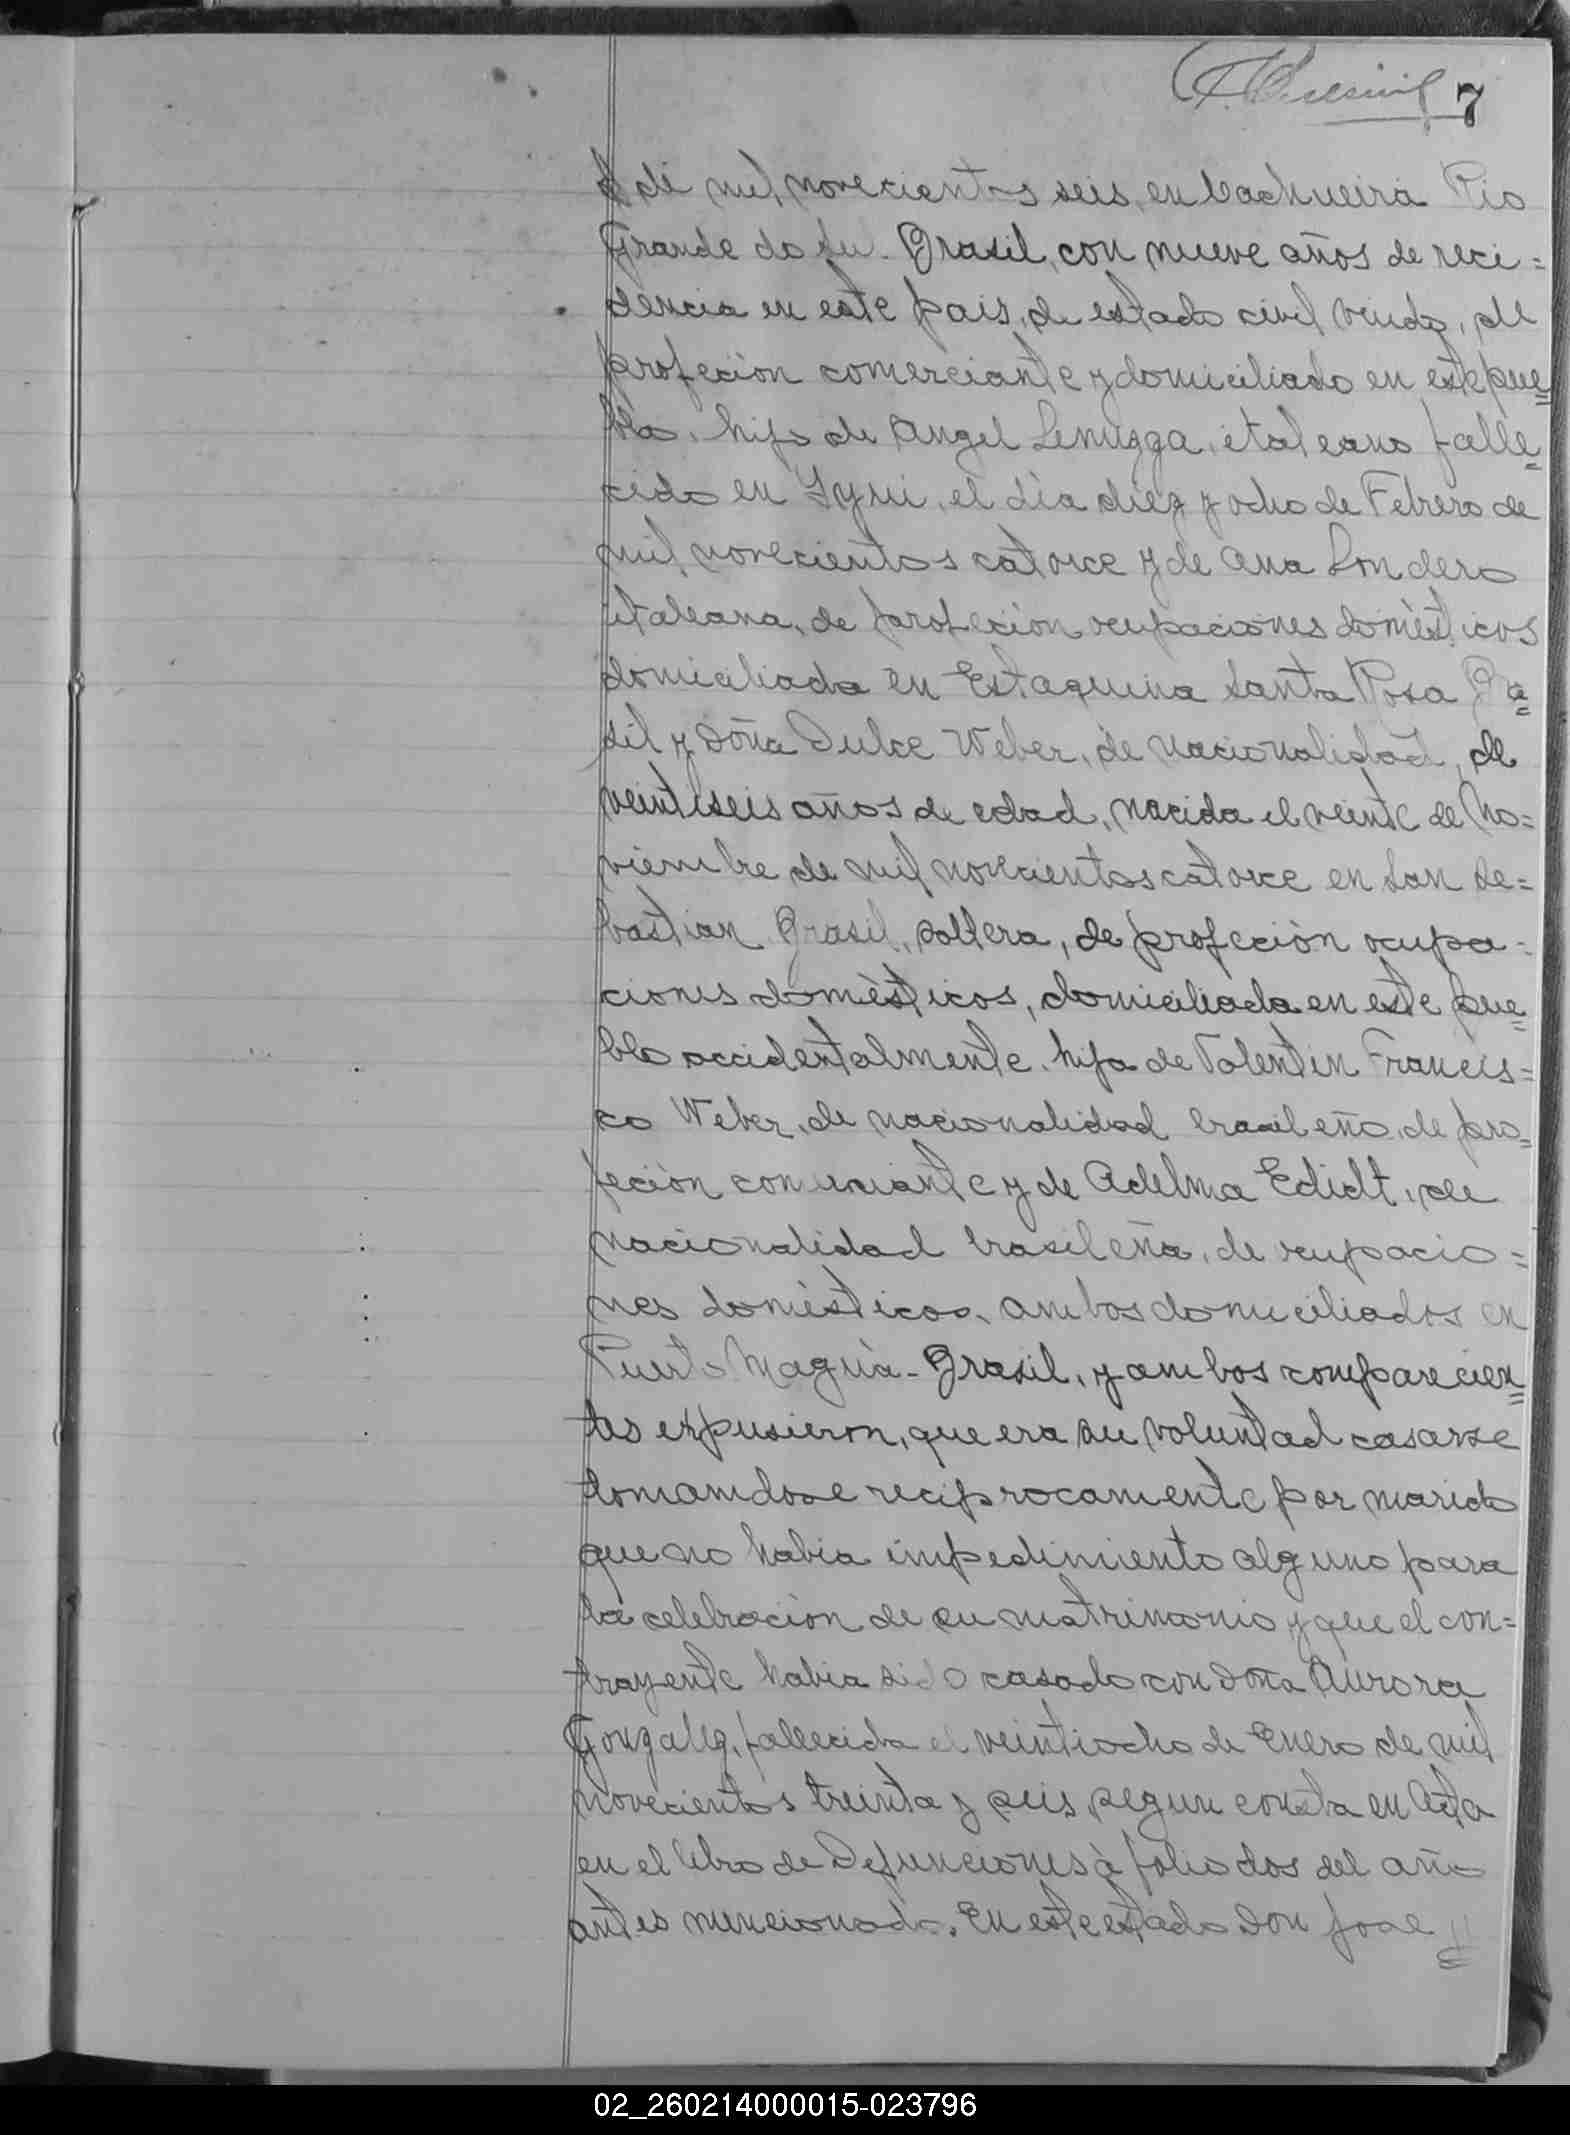 7
de mil novecientos seis, en Cachueira Rio
Grande do Sul. Brasil, con nueve años de reci=
dencia en este pais, de estado civil viudo, de
profeción comerciante y domiciliado en este pue=
blo. hijo de Angel Lenuzza, italeano falle=
cido en Yyui, el dia diez y ocho de Febrero de
mil novecientos catorce y de Ana Londero
italeana, de profeción ocupaciones domésticos
domiciliada en Estaquina Santa Rosa Bra=
sil y Doña Dulce Weber, de nacionalidad, de
veintiseis años de edad, nacida el veinte de No=
viembre de mil novecientos catorce en San Se=
bastian Brasil, soltera, de profeción ocupa=
ciones domésticos, domiciliada en este pue=
blo accidentalmente. hija de Valentin Francis=
co Weber, de nacionalidad brasileño, de pro=
feción comerciante y de Adelma Edidt, de
nacionalidad brasileña, de ocupacio=
nes domésticos, ambos domiciliados en
Puerto Maguá- Brasil, y ambos comparecien=
tes expusieron, que era su voluntad casarse
tomandose reciprocamente por marido
que no habia impedimiento alguno para
la celebración de su matrimonio y que el con=
trayente habia sido casado con Doña Aurora
Gonzalez, fallecida el veintiocho de Enero de mil
novecientos treinta y seis, segun consta en Acta
en el libro de Defunciones á folio dos del año
antes mencionado. En este estado Don José
02_260214000015-023796